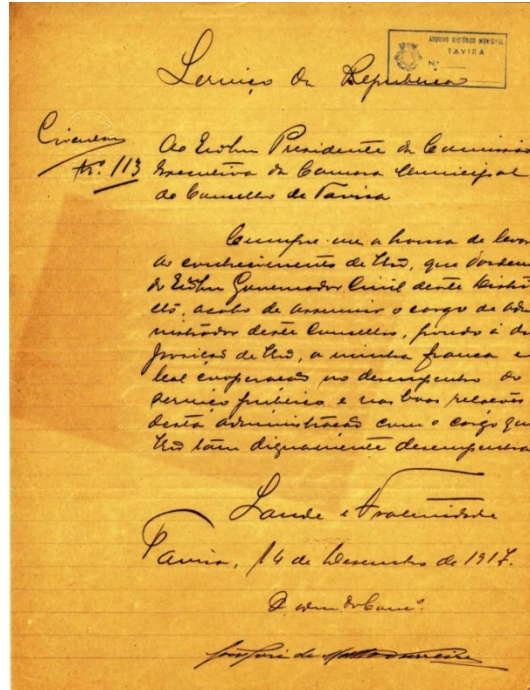 ARQUIVO HISTÓRICO MUNICIPAL
TAVIRA
N.º
Serviço da Republica
Circular
Nº 113
Ao Exmo Presidente da Comissão
Executiva da Camara Municipal
do Concelho de Tavira
Cumpre-me a honra de levar
ao conhecimento de que
do Exmo Governador Civil deste Distri
cto, acabo de assumir o cargo de admi
nistrador deste Concelho, pondo á dis
posição de a minha franca e
leal cooperação no desempenho do
serviço publico e nas boas relações
desta administração com o cargo que
tam dignamente desempenha
Saude e Fraternidade
Tavira, 14 de Dezembro de 1917.
O adm do Conc.º
José de